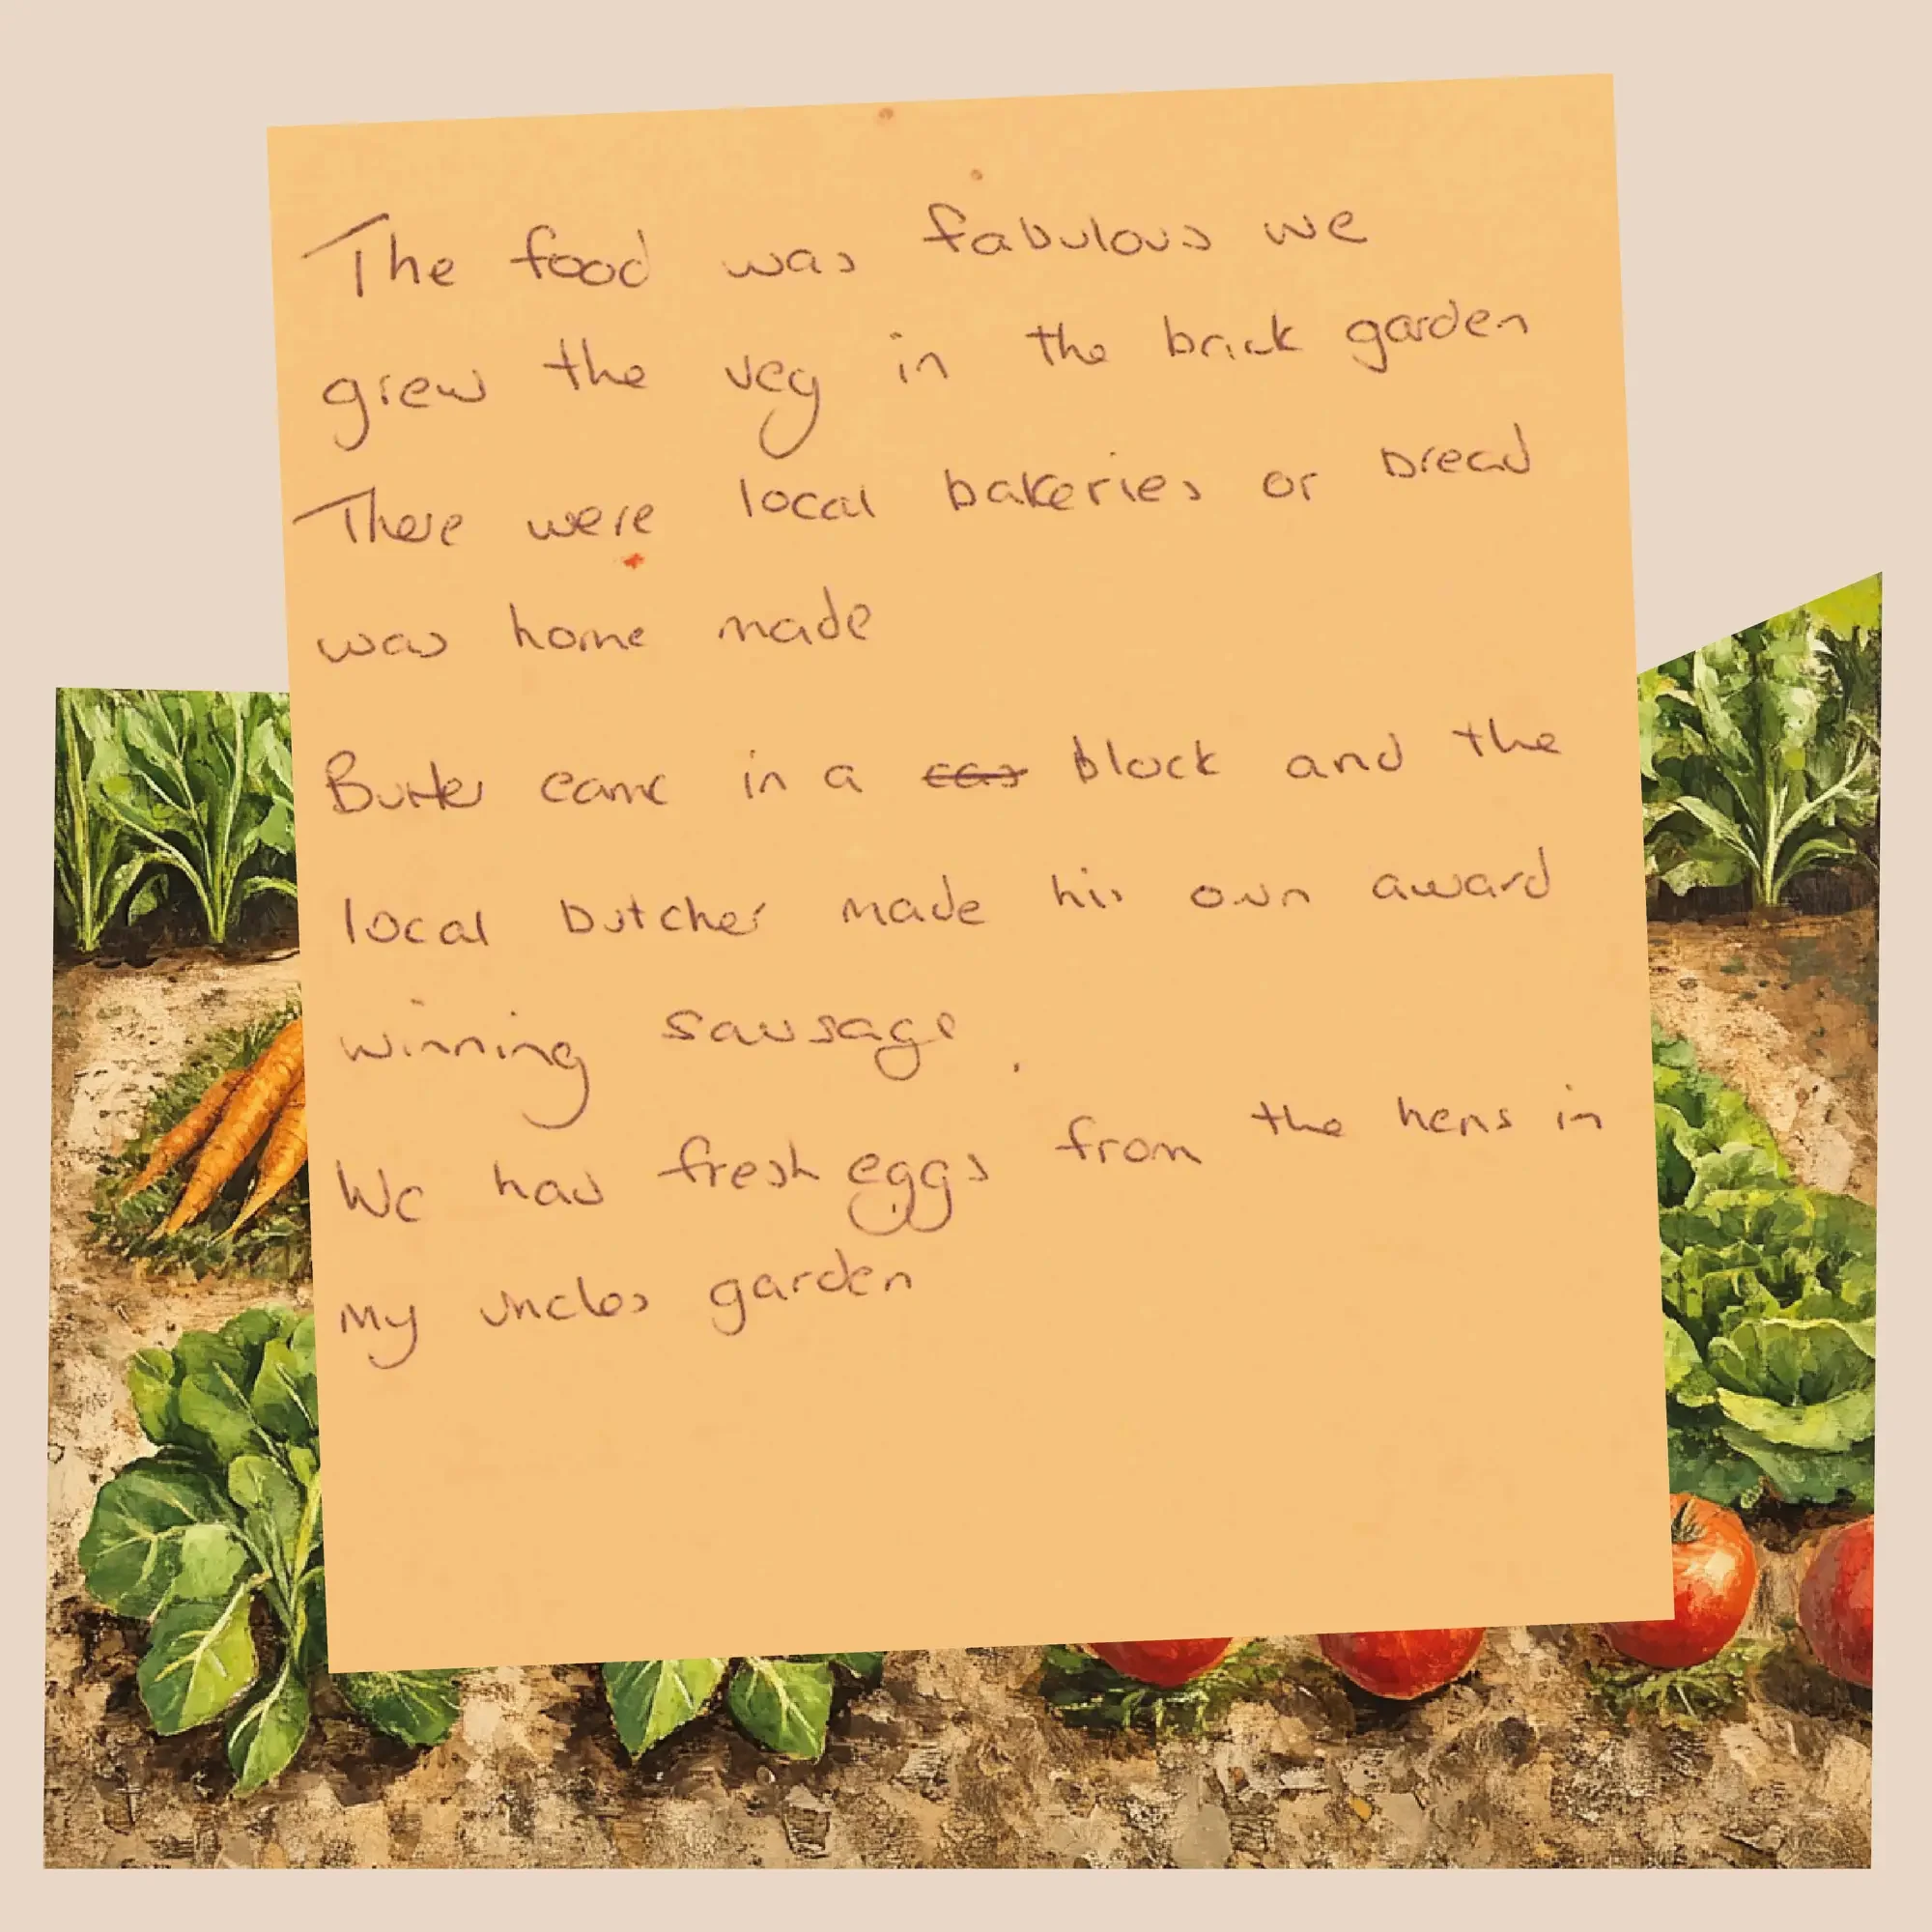 The food was fabulous we
grew the veg in the brick garden
There were local bakeries or bread
was home made
Butter came in a block and the
local butcher made his own award
winning sausage.
We had fresh eggs from the hens in
my uncles garden